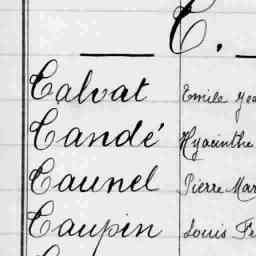 C.
Calvat Emile
Candé Hyacinthe
Caunel Pierre
Caupin Louis